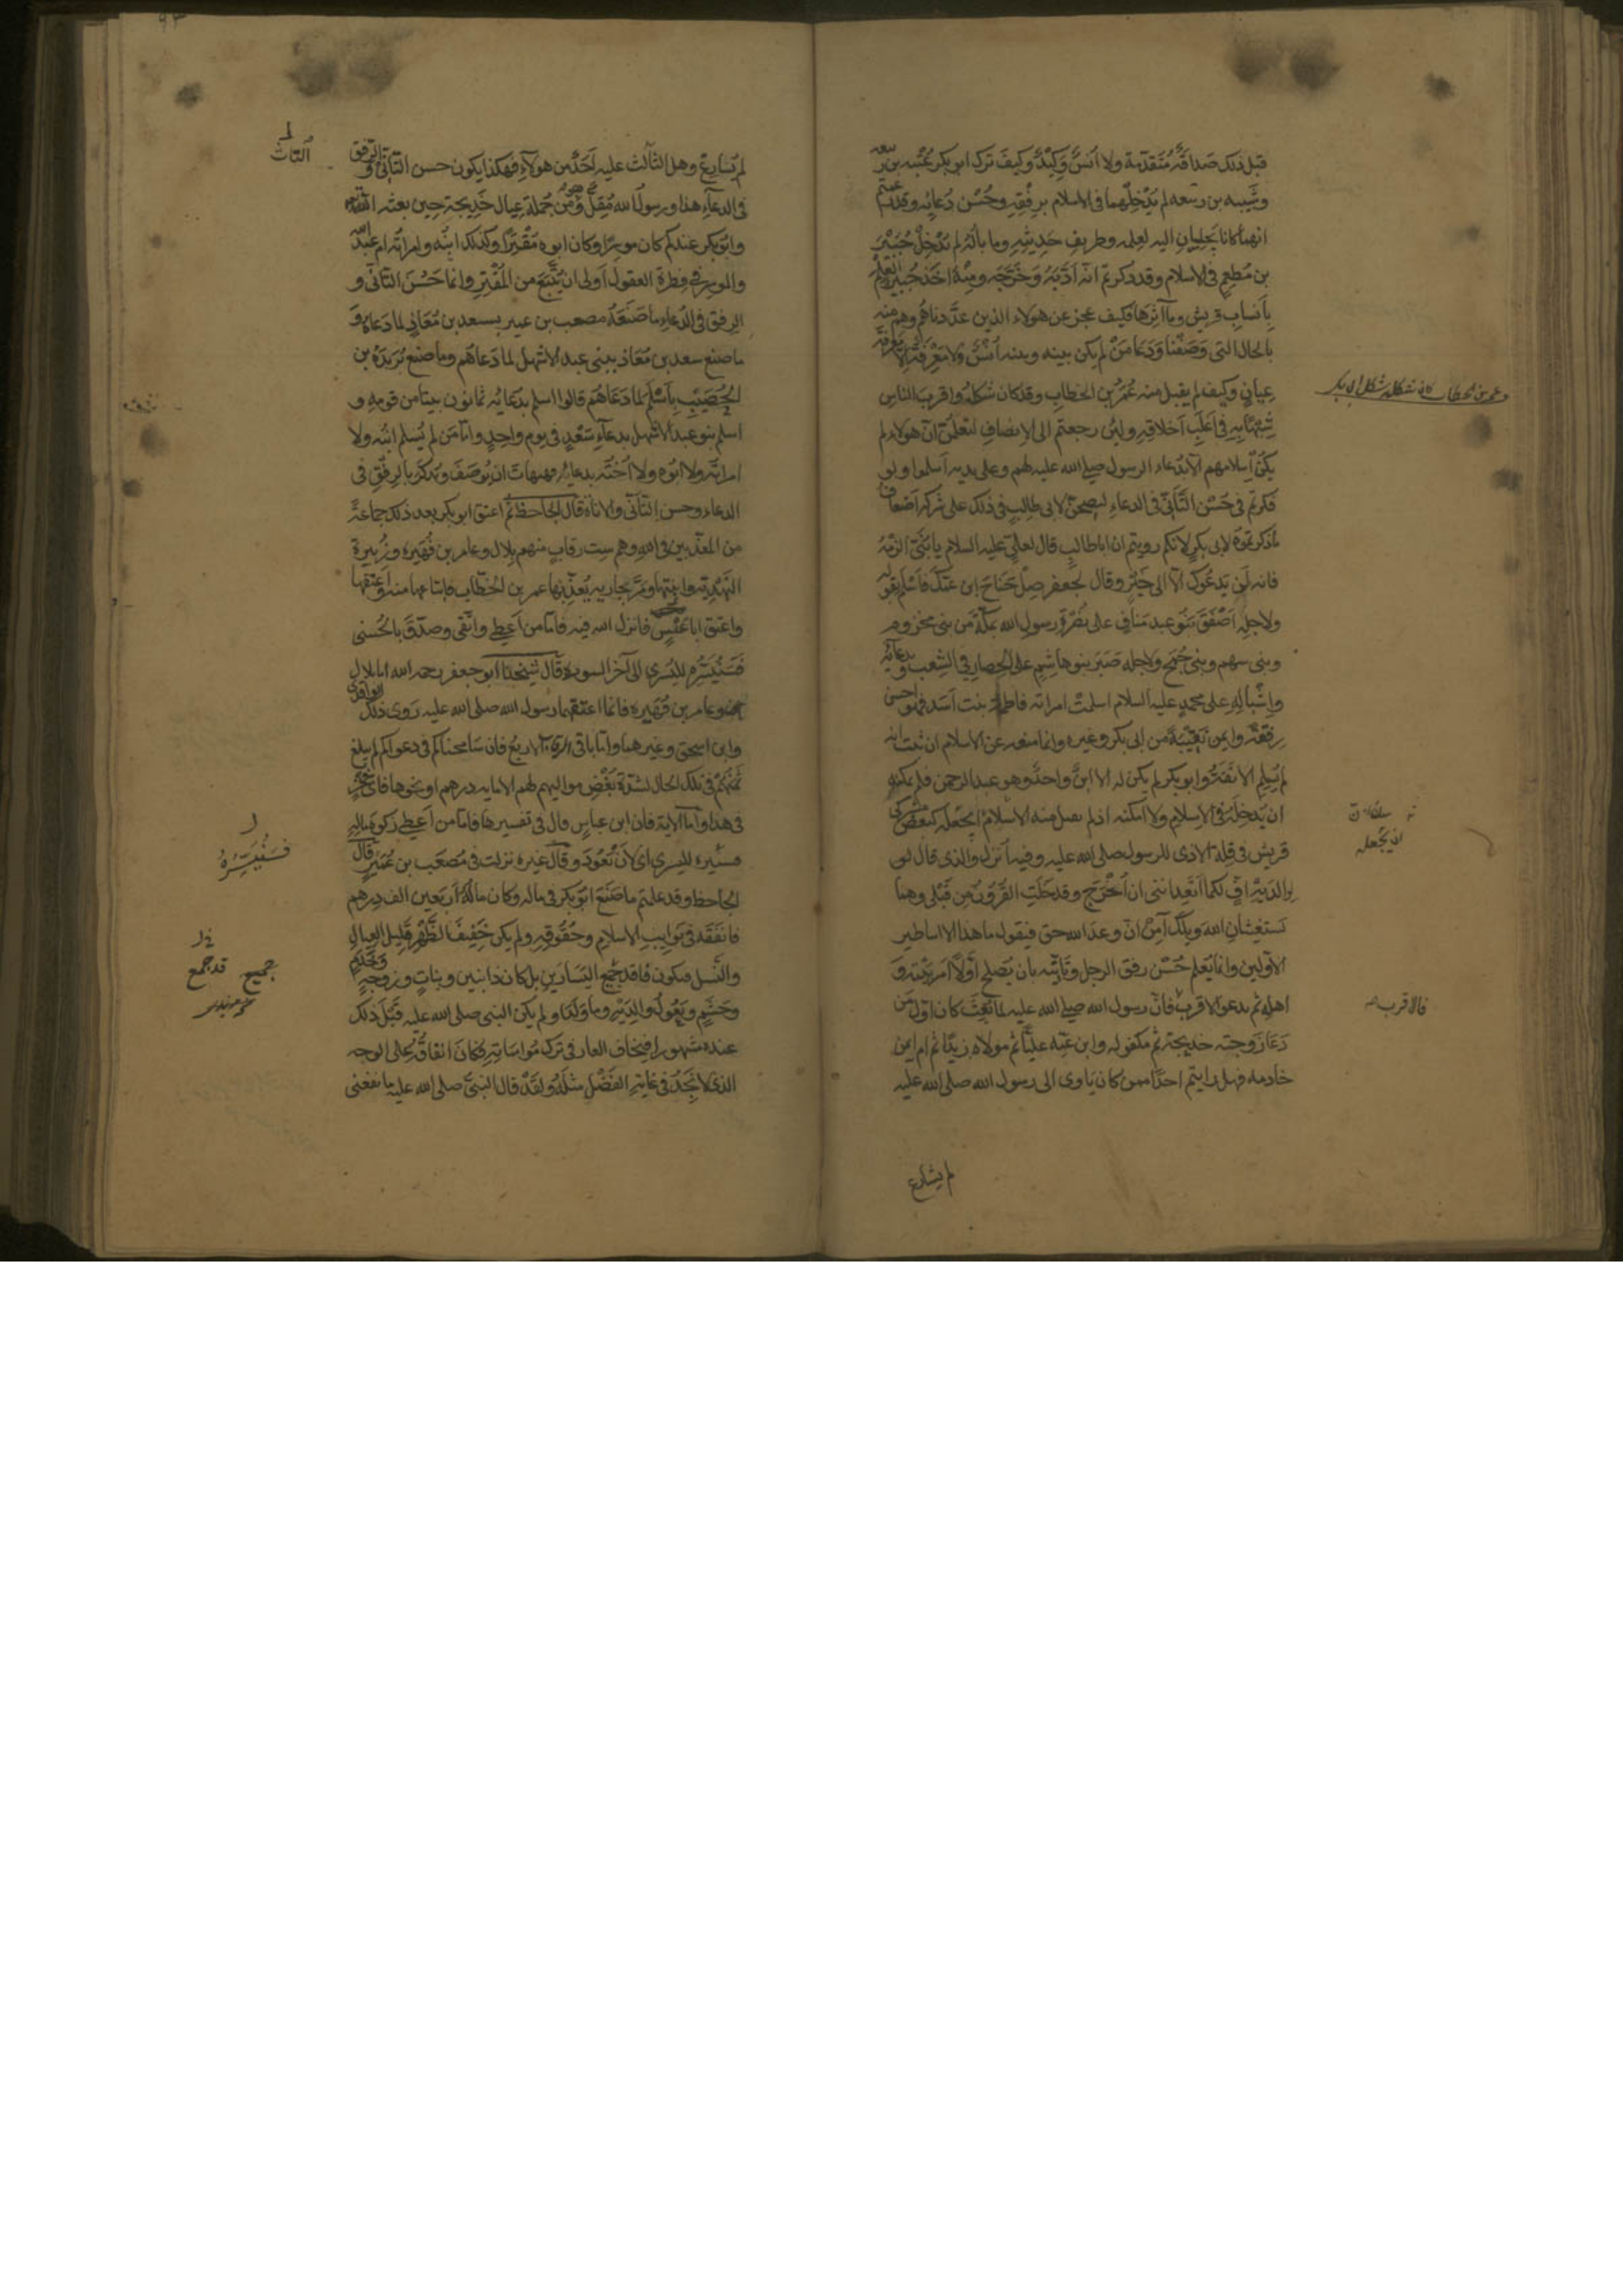 قبل ذلك صداقة متقدمة ولا انس وكيد وكيف ترك ابو بكر عتبه بن ربيعه
وشيبه بن ربيعه لم يدخلهما فى الاسلام برفقه وحسن دعائه وقد زعمتم
انهما كانا يجلسان اليه لعلمه وطريف حديثه وما باله لم يدخل جبير
بن مطعم فى الاسلام وقد ذكرتم انه ادبه وخرجه ومنه اخذ جبير العلم
بانساب قريش ومآثرها فكيف عجز عن هولاء الذين عددناهم وهم منه
بالحال التى وصفنا ودعا من لم يكن بينه وبينه انس ولا معرفة الا معرفة
عيان وكيف لم يقبل منه عمر بن الخطاب وقد كان شكله واقرب الناس
وعمر بن الخطاب كان شكله شكل ابى بكر
شبها به فى اغلب اخلاقه ولئن رجعتم الى الانصاف لتعلمن ان هولاء لم
يكن اسلامهم الا بدعاء الرسول صلى الله عليه لهم وعلى يديه اسلموا ولو
فكرتم فى حسن التأتى فى الدعاء ليصحن لابى طالب فى ذلك على شركه اضعاف
ما ذكرتموه لابى بكر لانكم رويتم ان ابا طالب قال لعلى عليه السلام يا بنى الزمه
فانه لن يدعوك الا الى خير وقال لجعفر صل جناح ابن عمك فاسلم بقوله
ولاجله اصفق بنو عبد مناف على نصرة رسول الله بمكة من بنى مخزوم
وبنى سهم وبنى جمح ولاجله صبر بنو هاشم على الحصار فى الشعب وبدعائه
واشباله على محمد عليه السلام اسلمت امراته فاطمة بنت اسد فهو احسن
رفقة وايمن نقيبة من ابى بكر وغيره وانما منعه عن الاسلام ان ثبت انه
لم يسلم الا تقية وابو بكر لم يكن له الا ابن واحد وهو عبد الرحمن فلم يمكنه
ان يدخله فى الاسلام ولا امكنه اذ لم يقبل منه الاسلام ان يجعله كبعض مشركى
ان يجعله
قريش فى قلة الاذى للرسول صلى الله عليه وفيه انزل والذى قال لو
الديه اف لكما اتعداننى ان اخرج وقد خلت القرون من قبلى وهما
يستغيثان الله ويلك آمن ان وعد الله حق فيقول ما هذا الا اساطير
الاولين وانما يعلم حسن رفق الرجل وتأتيه بان يصلح اولا امر بيته و
اهله ثم يدعو الاقرب فان رسول الله صلى الله عليه لما بعث كان اول من
فالاقرب صح
دعا زوجته خديجة ثم مكفوله وابن عمه عليا ثم مولاه زيدا ثم ام ايمن
خادمه فهل رايتم احدا ممن كان ياوى الى رسول الله صلى الله عليه
لم يسارع
لم يسارع وهل الثالث عليه احد من هولاء فهكذا يكون حسن التأتى والرفق
التاث
فى الدعاء هذا ورسول الله مقل وهو من جملة عيال خديجة حين بعثه الله
وابو بكر عندكم كان موسرا وكان ابوه مقترا وكذلك ابنه وامراته ام عبد الله
والموسر فى فطرة العقول اولى ان يتبع من المقتر وانما حسن التأتى و
الرفق فى الدعاء ما صنعه مصعب بن عمير بسعد بن معاذ لما دعاه و
ما صنع سعد بن معاذ ببنى عبد الاشهل لما دعاهم وما صنع بريدة بن
الحصيب باسلم لما دعاهم قالوا اسلم بدعايه ثمانون بيتا من قومه و
اسلم بنو عبد الاشهل بدعاء سعد فى يوم واحد واما من لم يسلم ابنه ولا
امراته ولا ابوه ولا اخته بدعايه فهيهات ان يوصف ويذكر بالرفق فى
الدعاء وحسن التأتى والاناة قال الجاحظ ثم اعتق ابو بكر بعد ذلك جماعة
من المعذبين فى الله وهم ست رقاب منهم بلال وعامر بن فهيرة وزنيرة
النهدية وابنتها ومر بجارية يعذبها عمر بن الخطاب فابتاعها منه واعتقها
واعتق ابا عبس فانزل الله فيه فاما من اعطى واتقى وصدق بالحسنى
فسنيسره لليسرى الى آخر السورة قال شيخنا ابو جعفر رحمه الله اما بلال
وعامر بن فهيرة فانما اعتقهما رسول الله صلى الله عليه روى ذلك الواقدى
وابن اسحق وغيرهما واما باقى الاربع فان سامحناكم فى دعواكم لم يبلغ
ثمنهم فى تلك الحال لشدة بغض مواليهم لهم الا مايه درهم او نحوها فاى فخر
فى هذا واما الاية فان ابن عباس قال فى تفسيرها فاما من اعطى زكوة ماله
فسنيسره
لليسرى اى لان نعود وقال غيره نزلت فى مصعب بن عمير قال
الجاحظ وقد علمتم ما صنع ابو بكر فى ماله وكان ماله اربعين الف درهم
فانفقه فى نوايب الاسلام وحقوقه ولم يكن خفيف الظهر قليل العيال
والنسل فيكون فاقد جميع اليسارين بل كان ذا بنين وبنات وزوجة وخدم
جميع قد جمع
وحشم ويعول والديه وما ولدا ولم يكن النبى صلى الله عليه قبل ذلك
عنده مشهورا فيخاف العار فى ترك مواساته فكان انفاقه على الوجه
الذى لا نجد فى غاية الفضل مثله ولقد قال النبى صلى الله عليه ما نفعنى